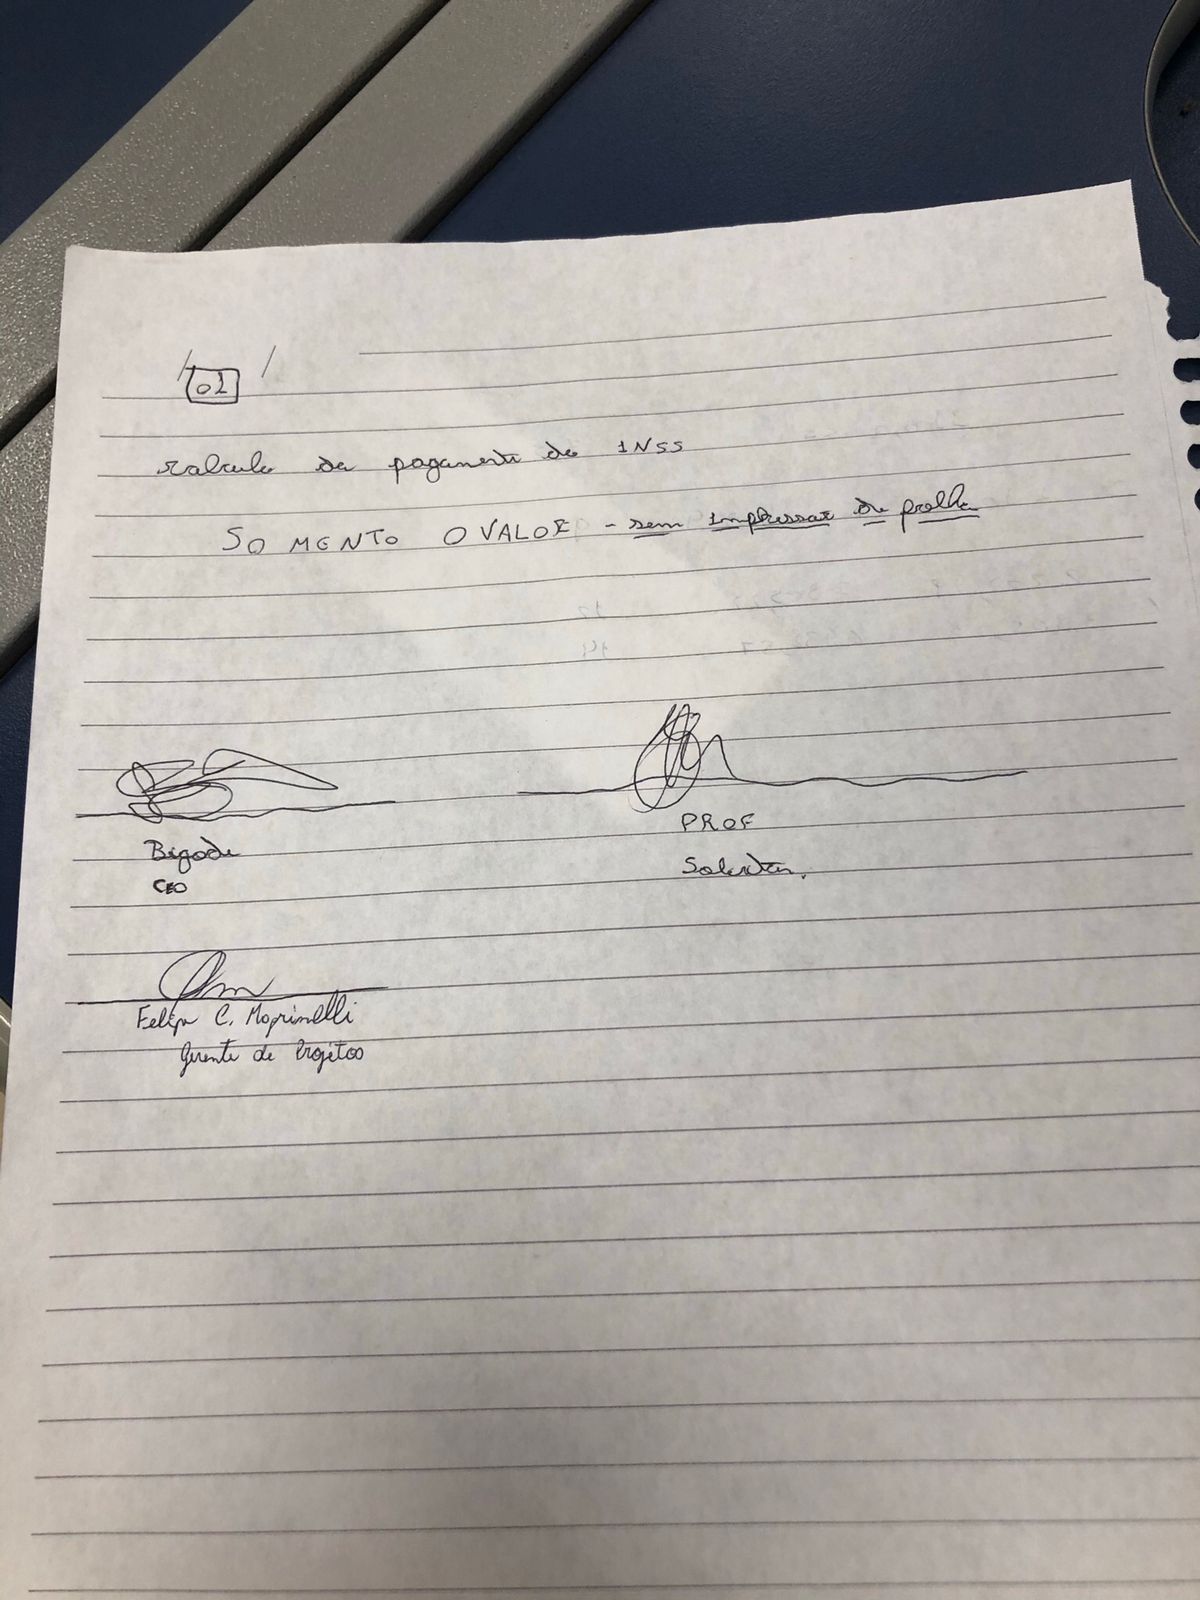 / 01 /
calculo de pagamento do INSS
SOMENTO O VALOR - sem impressao de
Bigode
CEO
PROF
Felipe C. Moprinelli
Gerente de Projetos